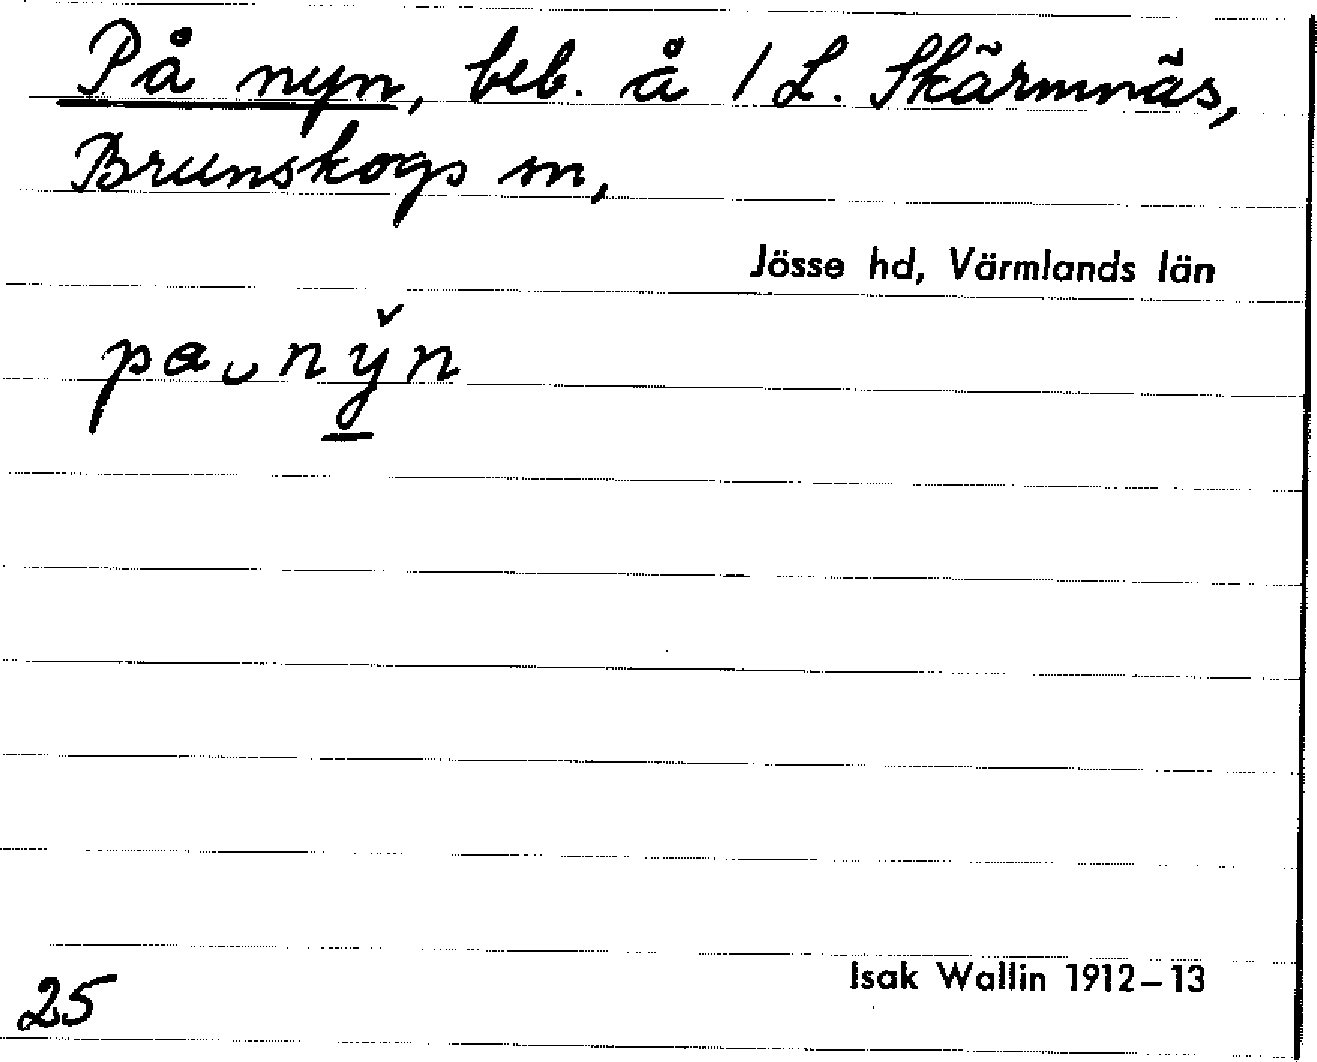 På nyn, beb. å 1 L. Skärmnäs,
Brunskogs sn,
Jösse hd, Värmlands län
pa ᴗ ny̲̌n
Isak Wallin 1912–13
25